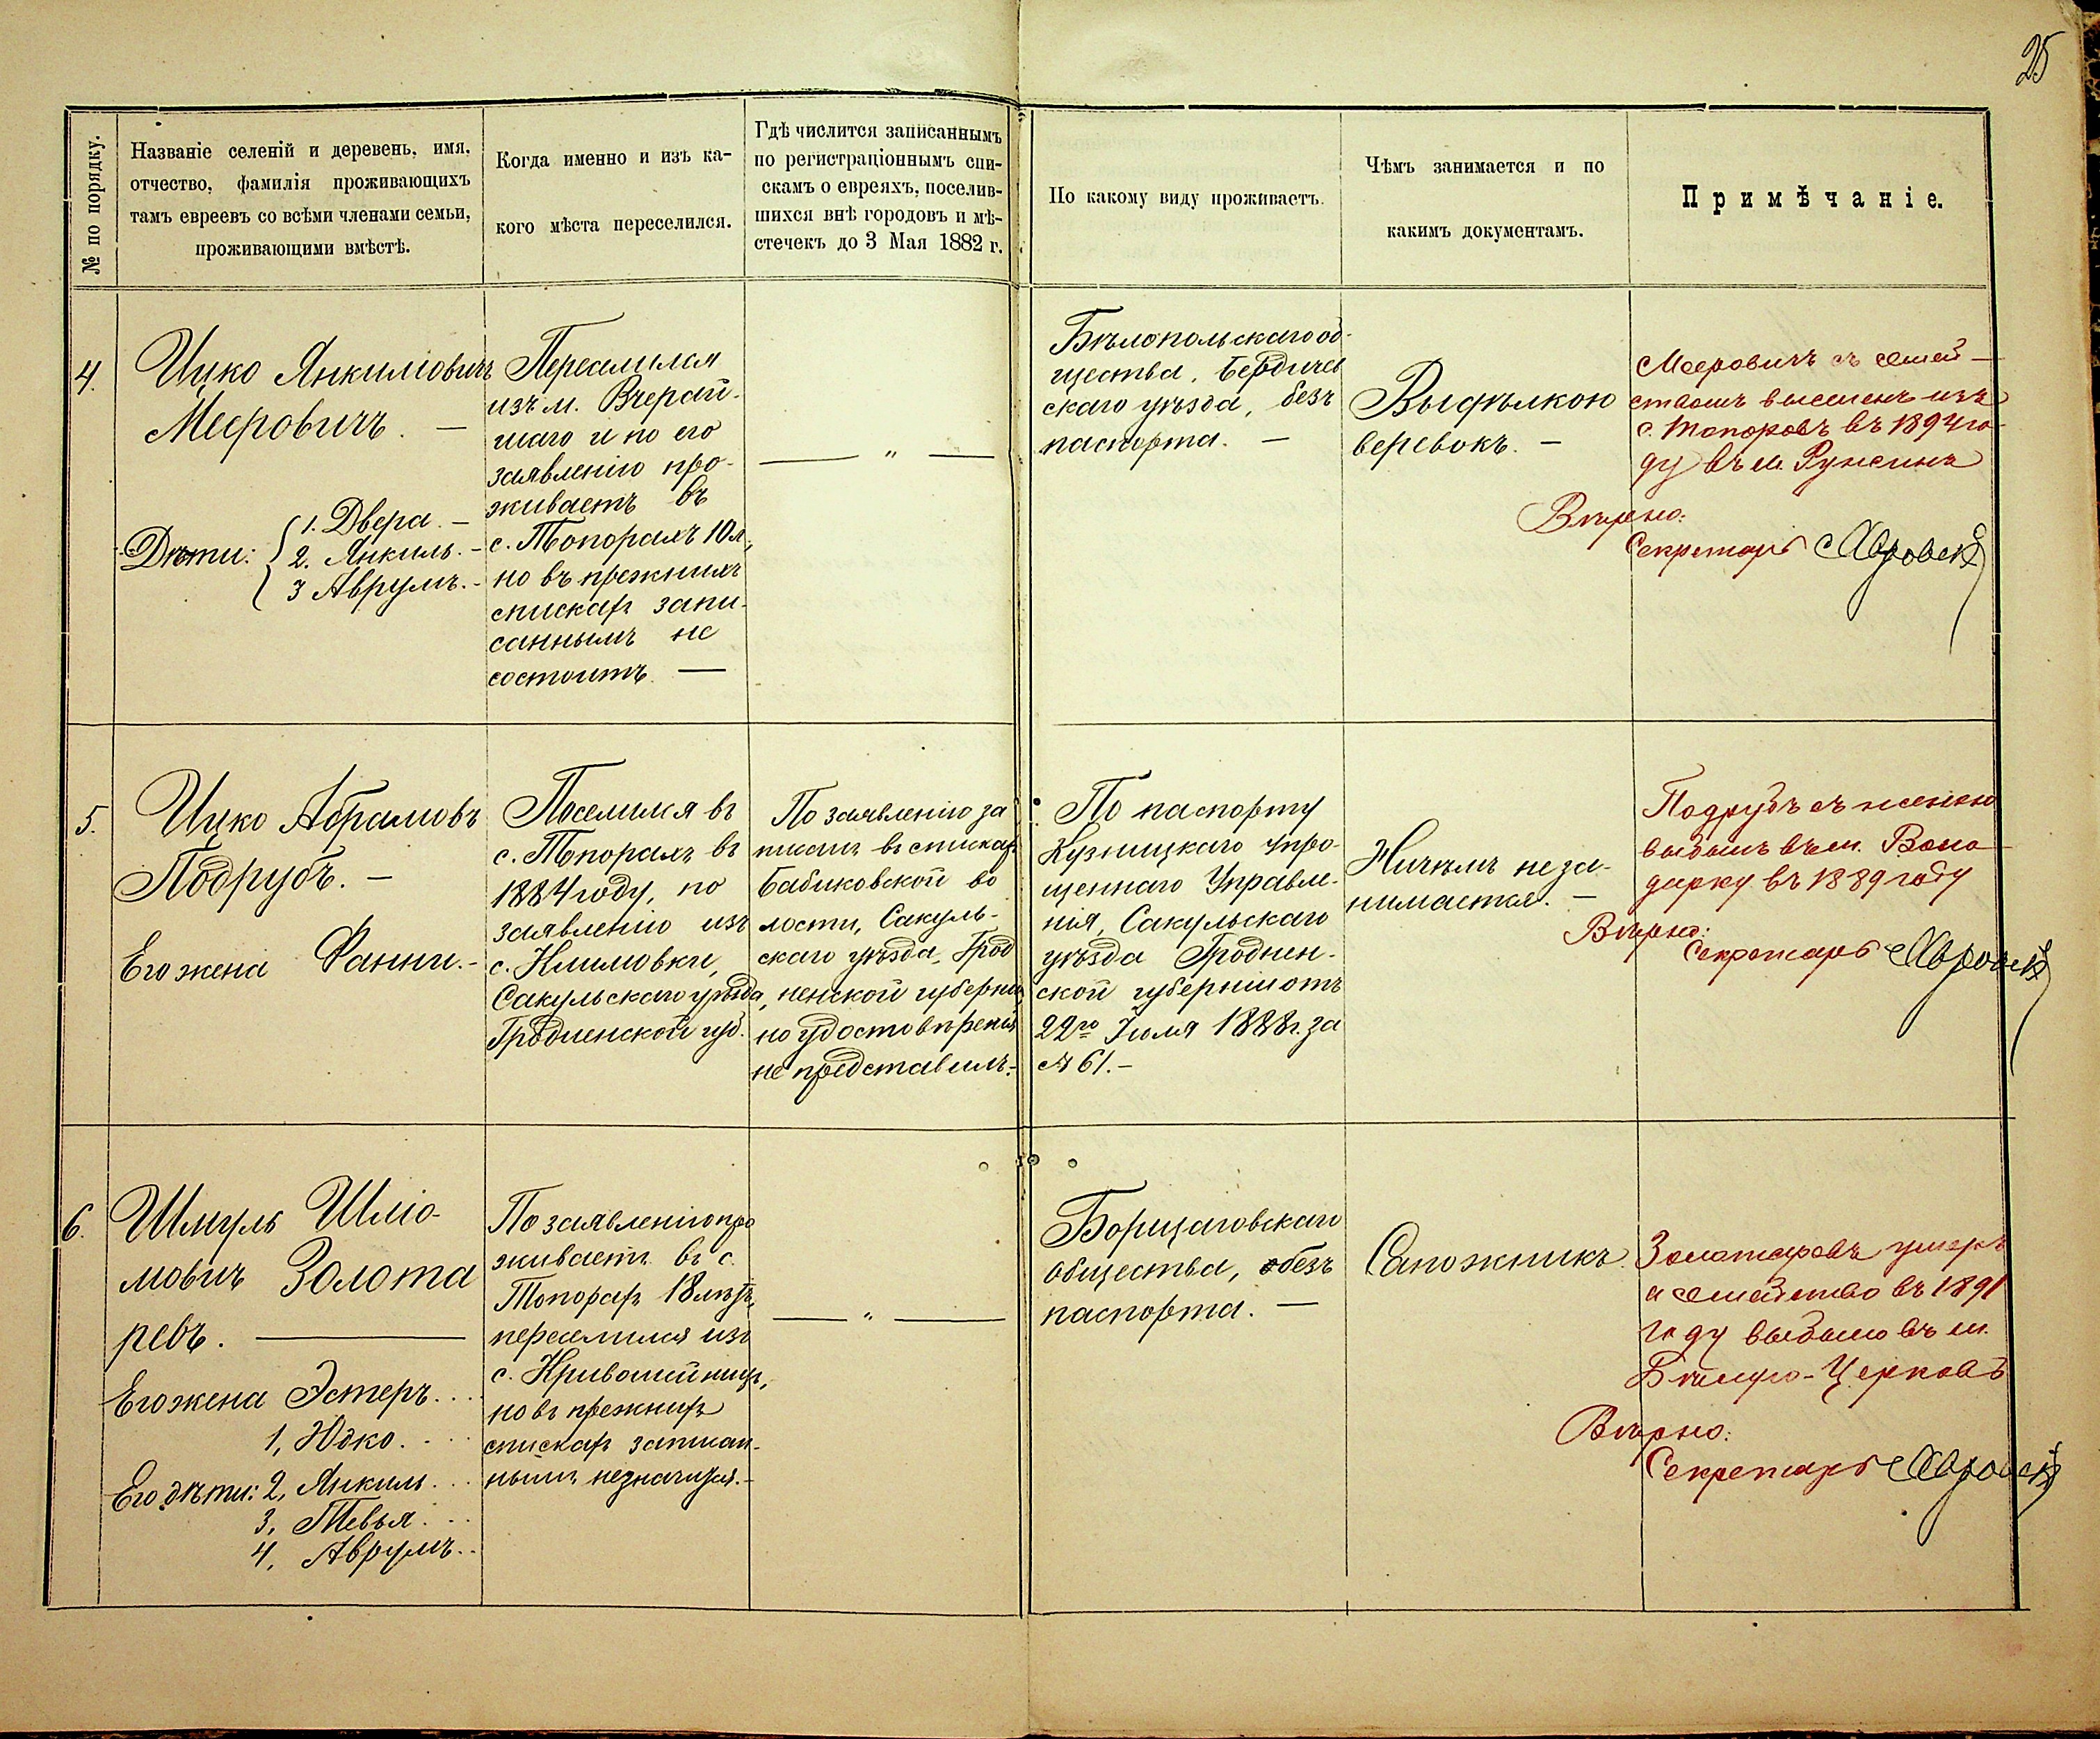 25
№ по порядку.
Названіе селеній и деревень, имя,
отчество, фамилія проживающихъ
тамъ евреевъ со всѣми членами семьи,
проживающими вмѣстѣ.
Когда именно и изъ ка-
кого мѣста переселился.
Гдѣ числится записаннымъ
по регистраціоннымъ спи-
скамъ о евреяхъ, поселив-
шихся внѣ городовъ и мѣ-
стечекъ до 3 Мая 1882 г.
По какому виду проживаетъ.
Чѣмъ занимается и по
какимъ документамъ.
Примѣчаніе.
4.
Ицко Янкилιовичъ
Мееровичъ. —
Дѣти:
1. Двера. —
2. Янкиль. —
3 Аврумъ. —
Переселился
изъ м. Вчерай-
шаго и по его
заявленію про-
живаетъ въ
с. Топорахъ 10 л.,
но въ прежнихъ
спискахъ запи-
саннымъ не
состоитъ. —
— " —
Бѣлопольскаго об-
щества, Бердичев
скаго уѣзда, безъ
паспорта. —
Выдѣлкою
веревокъ. —
Мееровичъ съ семей-
ствомъ выселенъ изъ
с. Топоровъ въ 1894 го-
ду въ м. Ружинъ
Вѣрно:
Секретарь
5.
Ицко Абрамовъ
Подрубъ. —
Его жена Фанни. —
Поселился въ
с. Топорахъ въ
1884 году, по
заявленію изъ
с. Климовки,
Сакульскаго уѣзда,
Гродненской губ.
По заявленію за
писанъ въ спискахъ
Бабиковской во
лости, Сакуль-
скаго уѣзда, Грод
ненской губерніи,
но удостовѣренія
не представилъ. —
По паспорту
Кузницкаго упро-
щеннаго Управле-
нія, Сакульскаго
уѣзда Гроднен-
ской губерніи отъ
22го Іюля 1888 г. за
№ 61. —
Ничѣмъ не за-
нимается. —
Подрубъ съ женою
выбылъ въ м. Воло
дарку въ 1889 году
Вѣрно:
Секретарь
6.
Шмуль Шліо-
мовичъ Золота
ревъ. —
Его жена Эстеръ. . .
Его дѣти:
1, Юдко. . .
2, Янкиль. . .
3, Тевья. . .
4, Аврумъ. .
По заявленію про
живаетъ въ с.
Топорахъ 18 лѣтъ,
переселился изъ
с. Кривошеинецъ,
но въ прежнихъ
спискахъ записан-
нымъ не значится. —
— " —
Борщаговскаго
общества, безъ
паспорта. —
Сапожникъ.
Золотаревъ умеръ
а семейство въ 1891
году выбыло въ м.
Бѣлую-Церковь
Вѣрно:
Секретарь